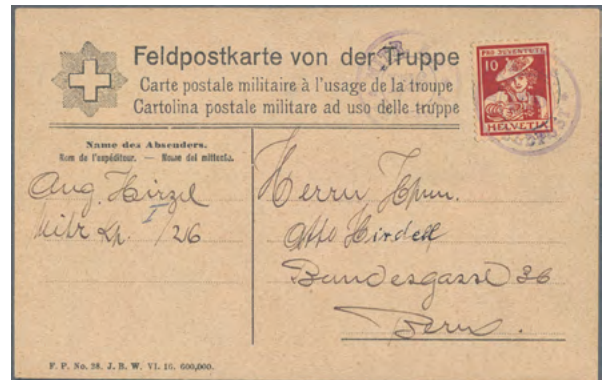 Feldpostkarte von der Truppe
Carte postale militaire à l'usage de la troupe
Cartolina postale militare ad uso delle truppe
PRO JUVENTUTE
10
HELVETIA
Name des Absenders.
Nom de l'expéditeur. — Nome del mittente.
Aug. Hirzel
Mitr Kp. I/26
Herrn
Otto
Bundesgasse 36
Bern.
F. P. No. 28. J. B. W. VI. 16. 600,000.